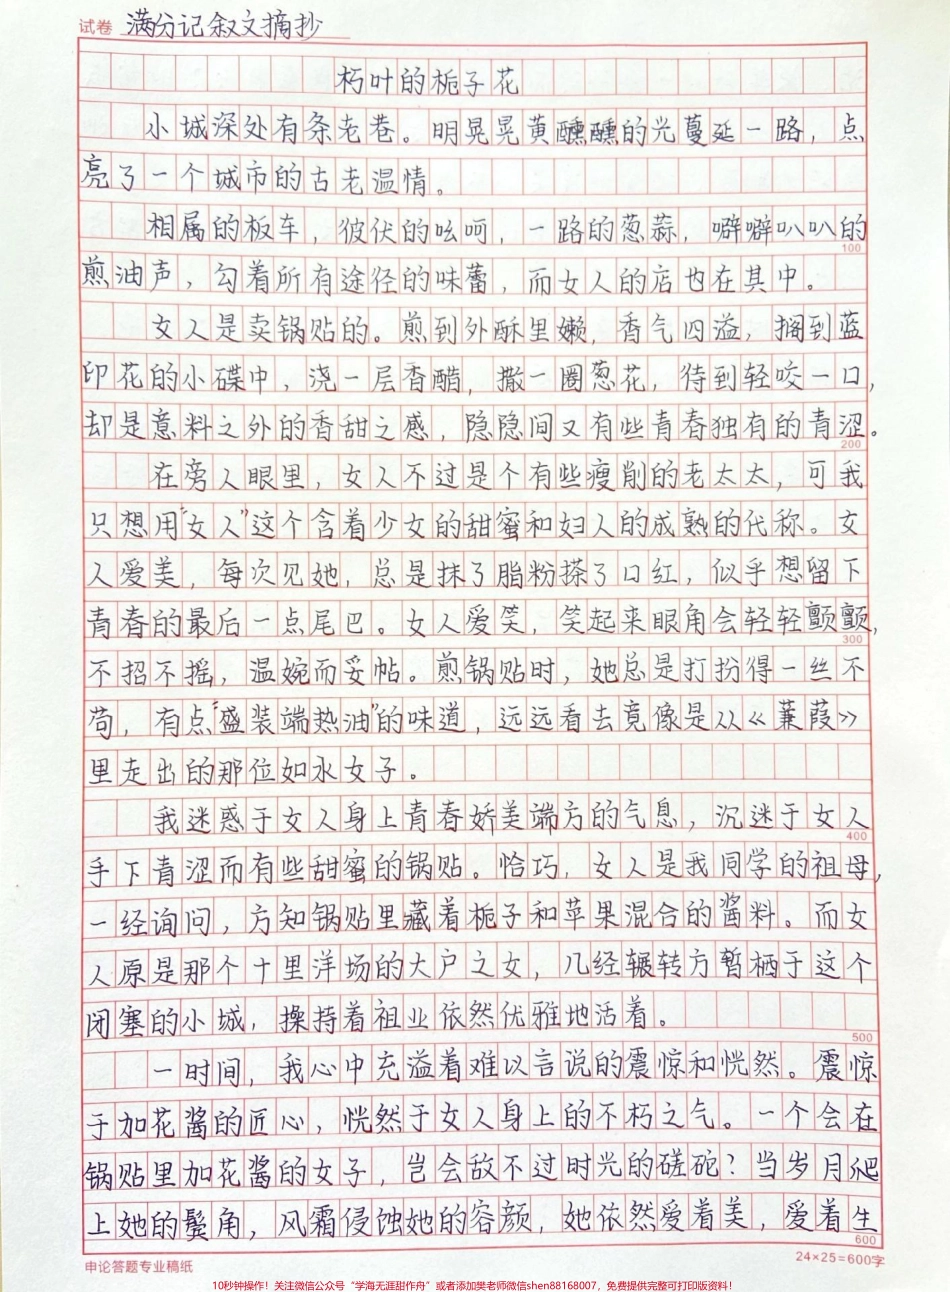 试卷 满分记叙文摘抄
朽叶的栀子花
小城深处有条老巷。明晃晃黄醺醺的光蔓延一路，点
亮了一个城市的古老温情。
相属的板车，彼伏的吆呵，一路的葱蒜，噼噼叭叭的
100
煎油声，勾着所有途径的味蕾，而女人的店也在其中。
女人是卖锅贴的。煎到外酥里嫩，香气四溢，搁到蓝
印花的小碟中，浇一层香醋，撒一圈葱花，待到轻咬一口，
却是意料之外的香甜之感，隐隐间又有些青春独有的青涩。
200
在旁人眼里，女人不过是个有些瘦削的老太太，可我
只想用“女人”这个含着少女的甜蜜和妇人的成熟的代称。女
人爱美，每次见她，总是抹了脂粉搽了口红，似乎想留下
青春的最后一点尾巴。女人爱笑，笑起来眼角会轻轻颤颤，
300
不招不摇，温婉而妥帖。煎锅贴时，她总是打扮得一丝不
苟，有点“盛装端热油”的味道，远远看去竟像是从《蒹葭》
里走出的那位如水女子。
我迷惑于女人身上青春娇美端方的气息，沉迷于女人
400
手下青涩而有些甜蜜的锅贴。恰巧，女人是我同学的祖母，
一经询问，方知锅贴里藏着栀子和苹果混合的酱料。而女
人原是那个十里洋场的大户之女，几经辗转方暂栖于这个
闭塞的小城，操持着祖业依然优雅地活着。
500
一时间，我心中充溢着难以言说的震惊和恍然。震惊
于加花酱的匠心，恍然于女人身上的不朽之气。一个会在
锅贴里加花酱的女子，岂会敌不过时光的磋砣？当岁月爬
上她的鬓角，风霜侵蚀她的容颜，她依然爱着美，爱着生
600
申论答题专业稿纸 24×25=600字
10秒钟操作！关注微信公众号“学海无涯甜作舟”或者添加樊老师微信shen88168007，免费提供完整可打印版资料！